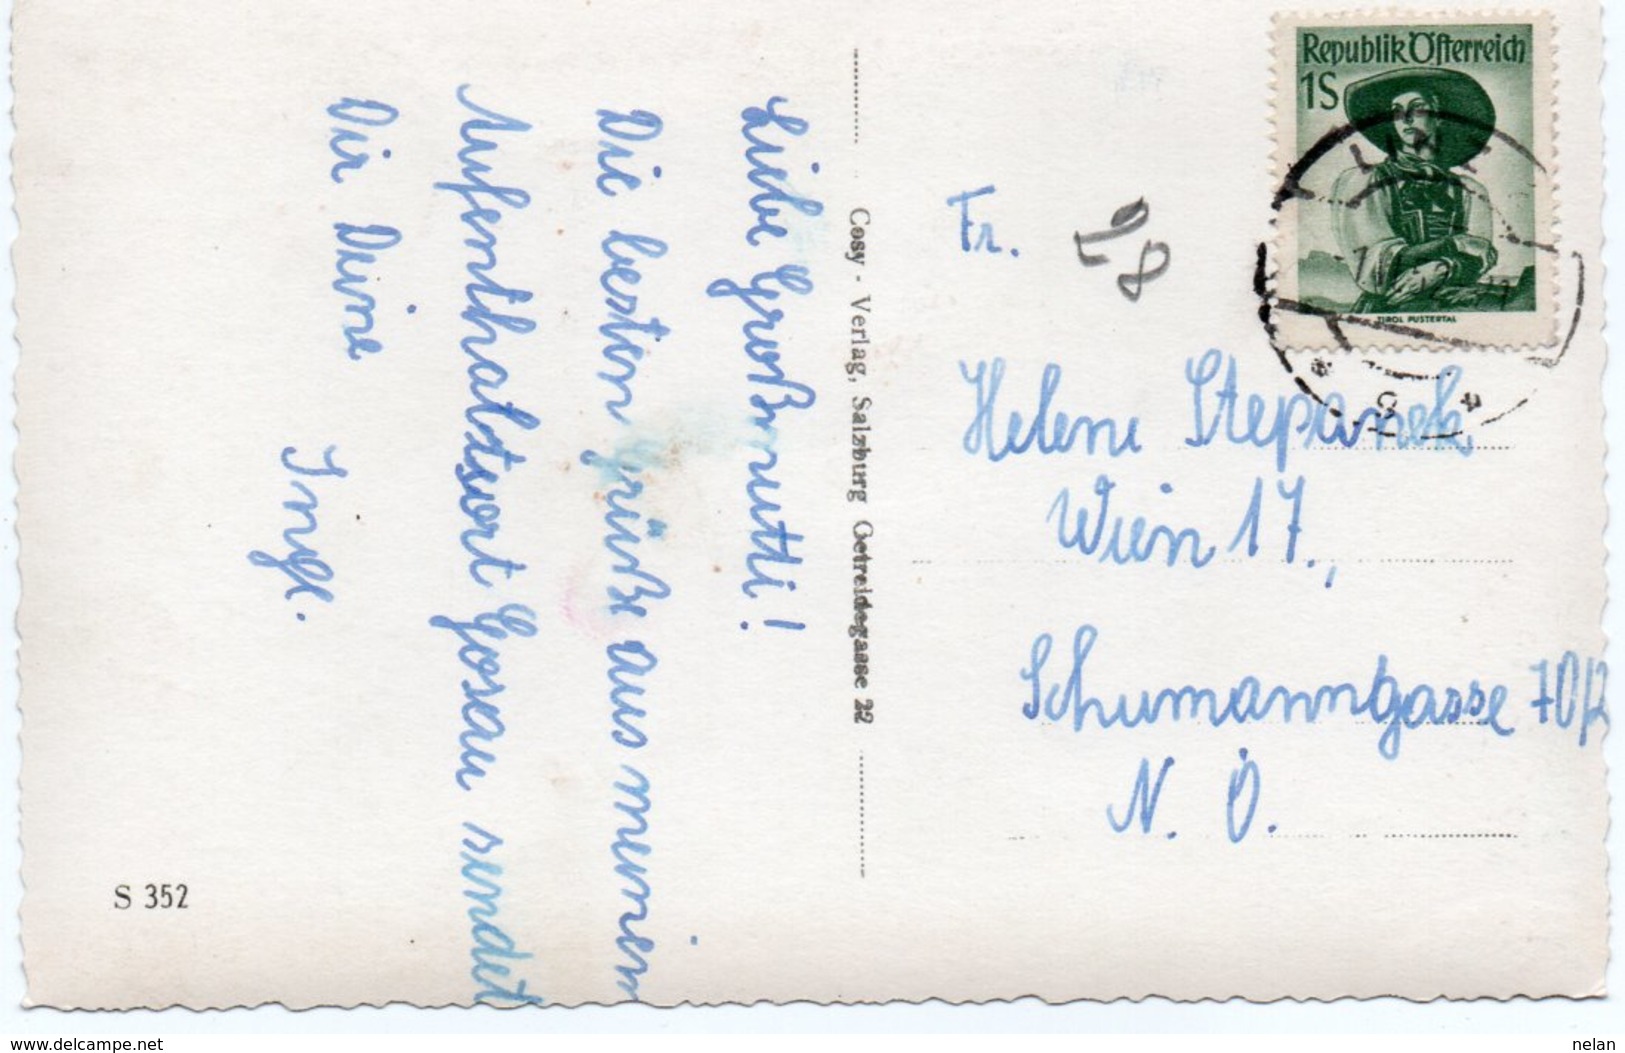 Liebe Großmutti!
Die besten Grüße aus meinem
Aufenthaltsort Gosau sendet
Dir Deine
Cosy - Verlag, Salzburg Getreidegasse 22
Republik Österreich
1S
TIROL PUSTERTAL
LINZ
Fr.
28
Helene Stepanek,
Wien 17.,
Schumanngasse 70/2
N. Ö.
S 352
www.delcampe.net
nelan